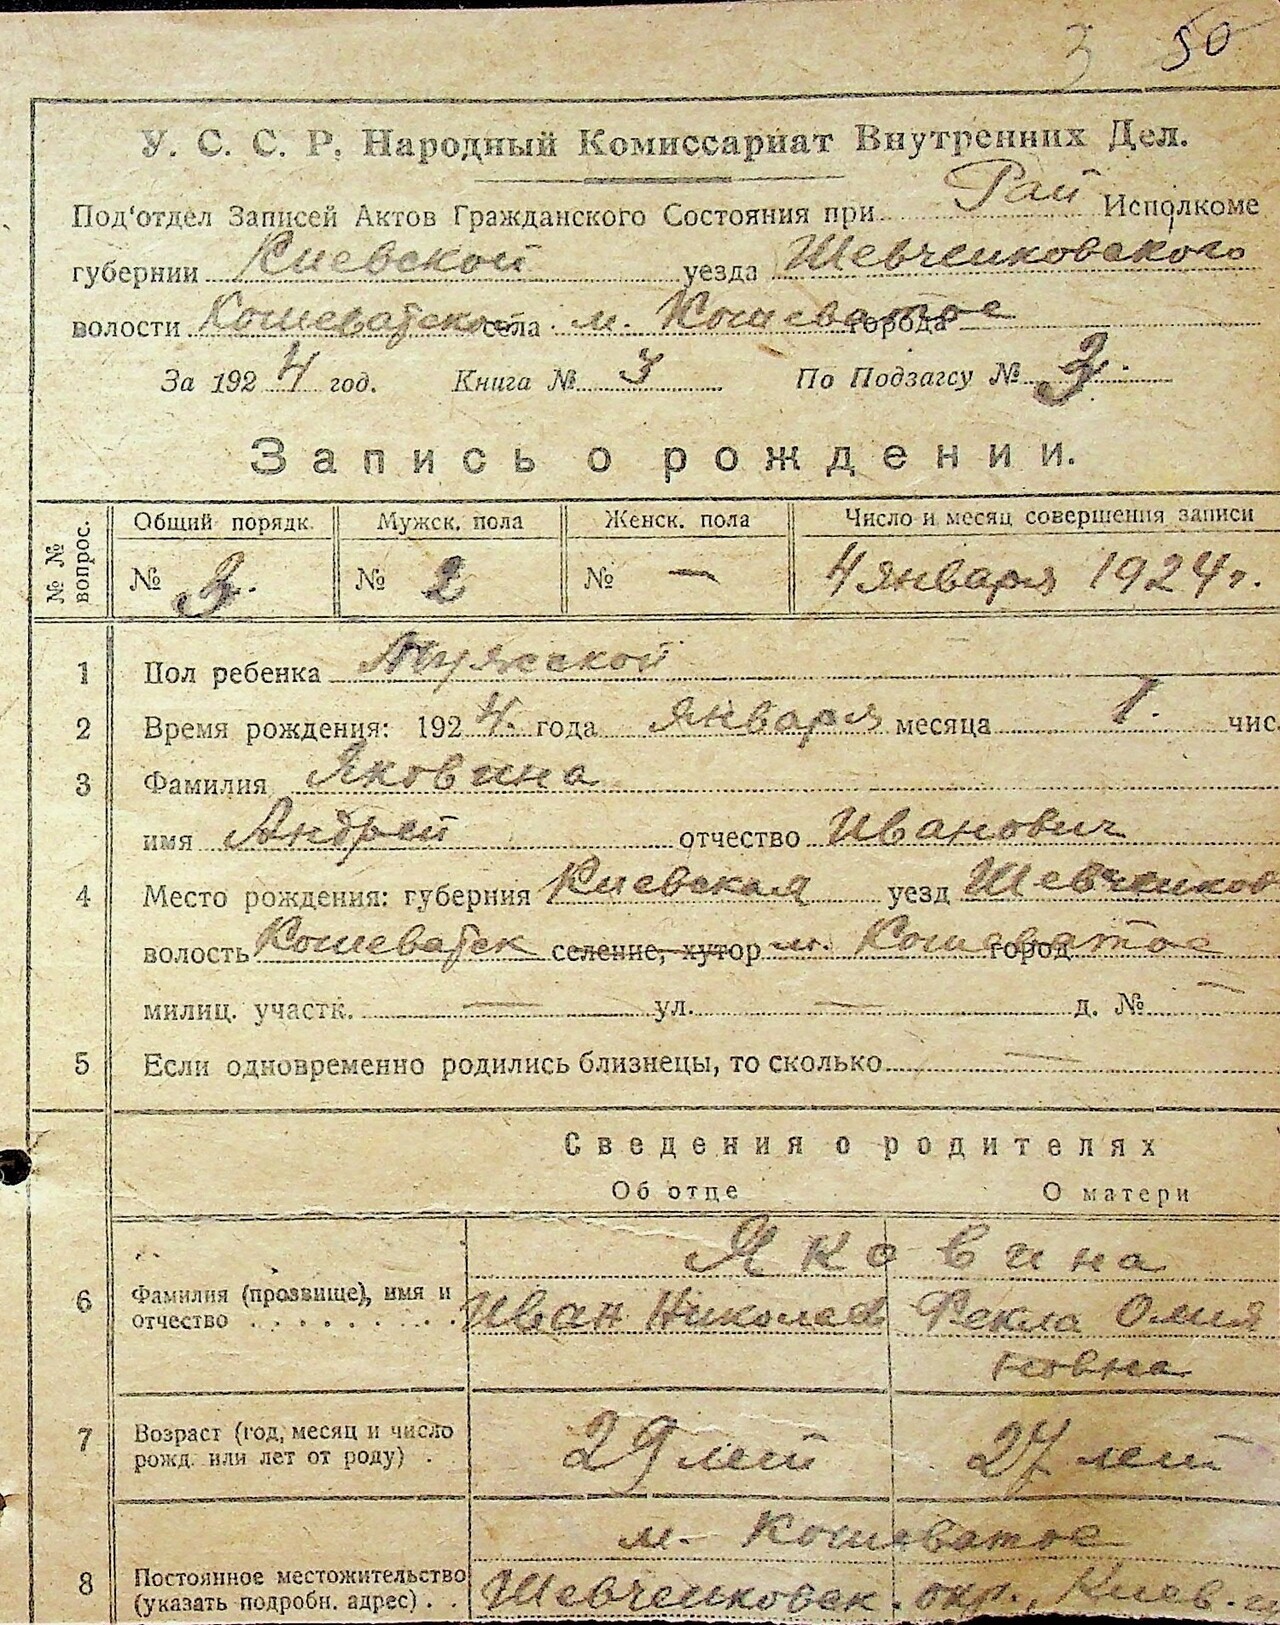 3 50
У. С. С. Р. Народный Комиссариат Внутренних Дел.
Под'отдел Записей Актов Гражданского Состояния при Рай Исполкоме
губернии Киевской уезда Шевченковского
волости Кошеватско села м. Кошеватое города
За 1924 год. Книга № 3 По Подзагсу № 3.
Запись о рождении.
№ № вопрос. Общий порядк. Мужск. пола Женск. пола Число и месяц совершения записи
№ 3. № 2 № — 4 января 1924 г.
1 Пол ребенка Мужской
2 Время рождения: 1924. года января месяца 1. чис.
3 Фамилия Яковина
имя Андрей отчество Иванович
4 Место рождения: губерния Киевская уезд Шевченков
волость Кошеватск селение, хутор м. Кошеватое город
милиц. участк. — ул. — д. № —
5 Если одновременно родились близнецы, то сколько —
Сведения о родителях
Об отце О матери
Яковина
6 Фамилия (прозвище), имя и отчество Иван Николаев Фекла Омия
новна
7 Возраст (год, месяц и число рожд. или лет от роду) . 29 лет 27 лет
м. Кошеватое
8 Постоянное местожительство (указать подробн. адрес) . . Шевченковск. окр., Киев.